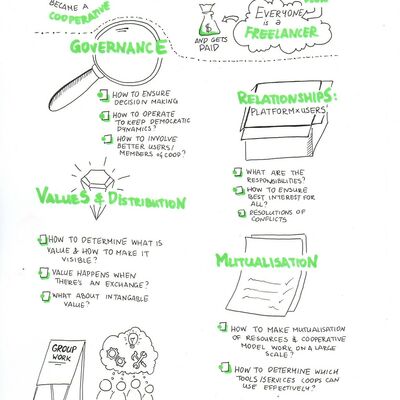 BECAME A
COOPERATIVE
EVERYONE
IS A
FREELANCER
AND GETS
PAID
GOVERNANCE
HOW TO ENSURE
DECISION MAKING
HOW TO OPERATE
TO KEEP DEMOCRATIC
DYNAMICS?
HOW TO INVOLVE
BETTER USERS/
MEMBERS of COOP?
RELATIONSHIPS:
'PLATFORM x USERS'
WHAT ARE THE
RESPONSIBLITIES?
HOW TO ENSURE
BEST INTEREST FOR
ALL?
RESOLUTIONS OF
CONFLICTS
VALUES & DISTRIBUTION
HOW TO DETERMINE WHAT IS
VALUE & HOW TO MAKE IT
VISIBLE?
VALUE HAPPENS WHEN
THERE'S AN EXCHANGE?
WHAT ABOUT INTANGABLE
VALUE?
MUTUALISATION
HOW TO MAKE MUTUALISATION
OF RESOURCES & COOPERATIVE
MODEL WORK ON A LARGE
SCALE?
HOW TO DETERMINE WHICH
TOOLS/SERVICES COOPS CAN
USE EFFECTIVELY?
GROUP
WORK